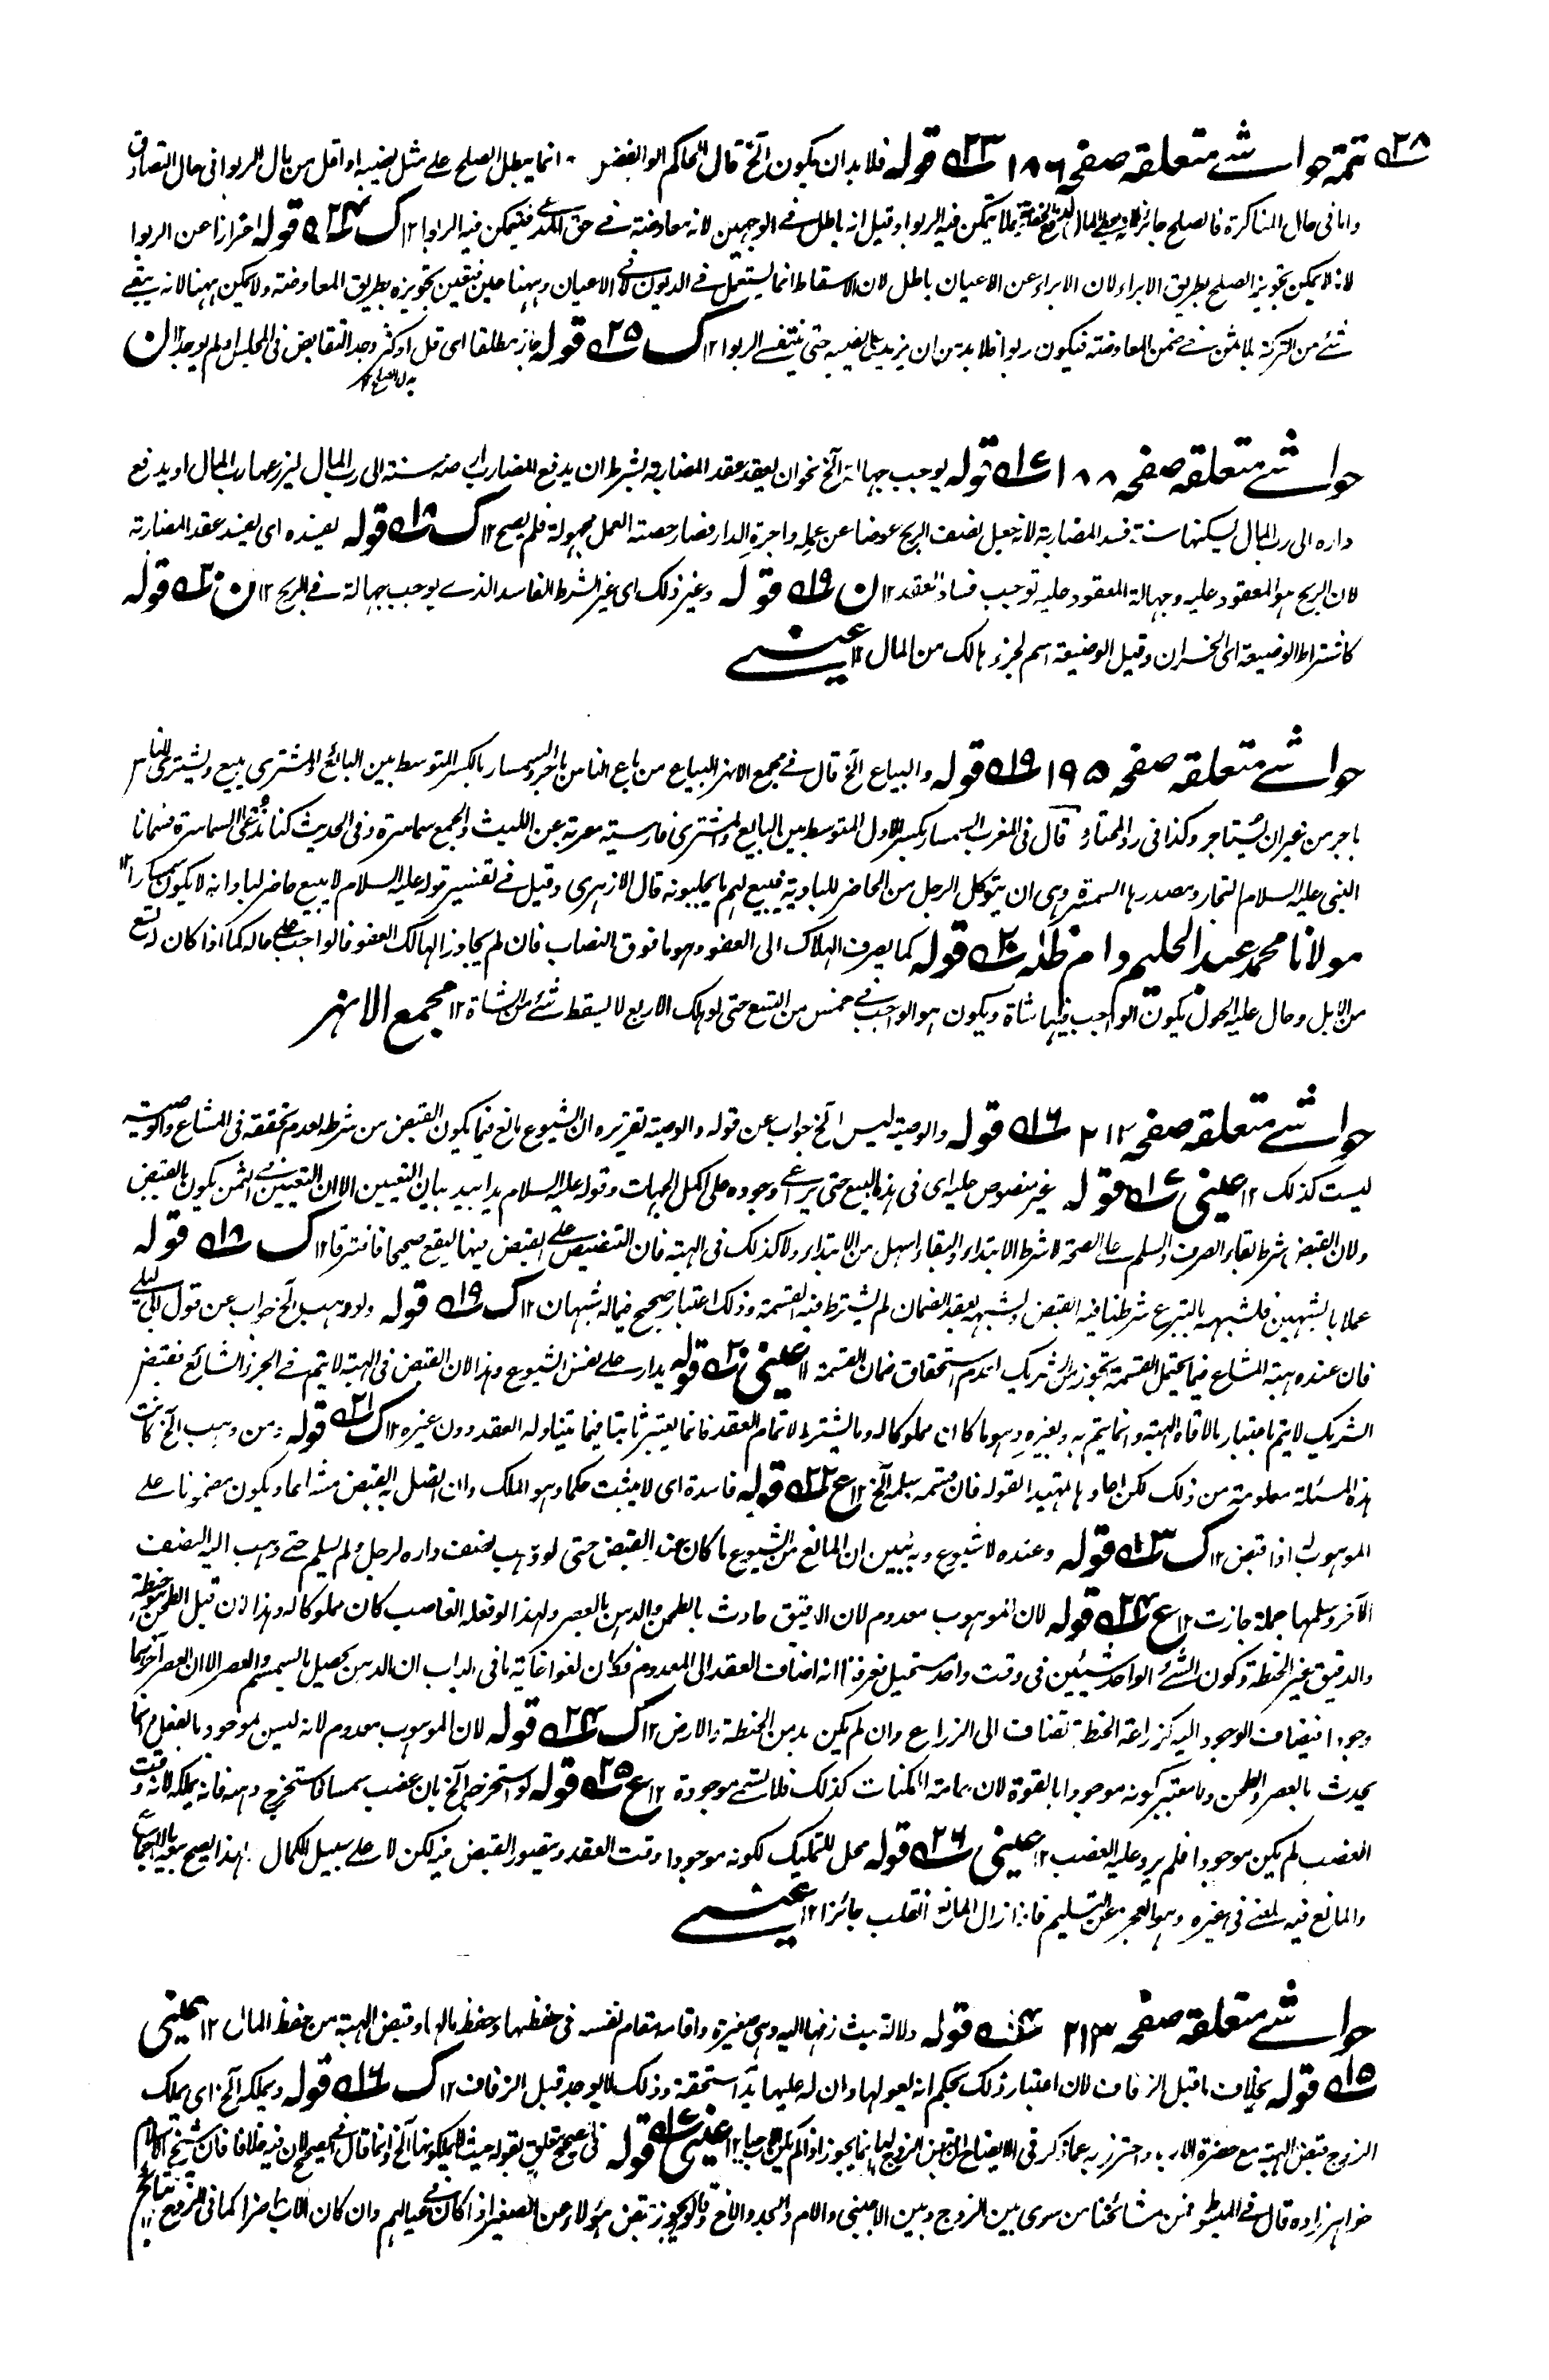 ۲۸ تتمہ حواشے متعلقہ صفحہ ۱۸۶ ۲۳ قولہ فلا بد ان یکون الخ قال الحاکم ابو الفضل انما یبطل الصلح علے مثل نصیبہ او اقل من مال الربوا فی حال التصادق
واما فی حال المناکرۃ فالصلح جائز لا یتمکن فیہ الربوا وقیل انہ باطل فے الوجہین لانہ معاوضۃ فے حق المدعے فیتمکن فیہ الربوا ۱۲ ک ۲۴ قولہ احترازا عن الربوا
لانہ لا یمکن تجویز الصلح بطریق الابراء لان الابراء عن الاعیان باطل لان الاسقاط انما یستعمل فے الدیون لا فی الاعیان وہہنا عین فتعین تجویزہ بطریق المعاوضۃ ولا یمکن ہہنا لانہ یبقے
شئے من الترکۃ بلا ثمن فے ضمن المعاوضۃ فیکون ربوا فلا بد من ان یزید علی نصیبہ حتی ینتفے الربوا ۱۲ ک ۲۵ قولہ جاز مطلقا ای قل او کثر وجد التقابض فی المجلس او لم یوجد ۱۲ ن
بدل الصلح ۱۲
حواشے متعلقہ صفحہ ۱۸۸ ۱۷ قولہ یوجب جہالۃ الخ نحو ان یعقد عقد المضاربۃ بشرط ان یدفع المضارب ارضہ سنۃ الی رب المال لیزرعہا رب المال او یدفع
دارہ الی رب المال لیسکنہا سنۃ فسد المضاربۃ لانہ جعل نصف الربح عوضا عن عملہ واجرۃ الدار فصار حصتہ العمل مجہولۃ فلم یصح ۱۲ ک ۱۸ قولہ یفسدہ ای یفسد عقد المضاربۃ
لان الربح ہو المعقود علیہ وجہالۃ المعقود علیہ توجب فساد العقد ۱۲ ن ۱۹ قولہ وغیر ذلک ای غیر الشرط الفاسد الذے یوجب جہالۃ فے الربح ۱۲ ن ۲۰ قولہ
کاشتراط الوضیعۃ ای الخسران وقیل الوضیعۃ اسم لجزء ہالک من المال ۱۲ عینے
حواشے متعلقہ صفحہ ۱۹۵ ۱۹ قولہ والبیاع الخ قال فے مجمع الانہر البیاع من باع الناس باجر والسمسار بالکسر المتوسط بین البائع والمشتری یبیع ویشتری للناس
باجر من غیر ان یستاجر وکذا فی رد المحتار قال فی المغرب السمسار بکسر الاول المتوسط بین البایع والمشتری فارسیۃ معربۃ عن اللیث والجمع سماسرۃ وفی الحدیث کنا ندعی السماسرۃ فسمانا
النبی علیہ السلام التجار ومصدرہا السمسرۃ وہی ان یتوکل الرجل من الحاضر للبادیۃ فیبیع لہم ما یجلبونہ قال الازہری وقیل فے تفسیر قولہ علیہ السلام لا یبیع حاضر لباد انہ لا یکون سمسارا ۱۲
مولانا محمد عبد الحلیم دام ظلہ ۲۰ قولہ کما یصرف الہلاک الی العفو وہو ما فوق النصاب فان لم یجاوز الہالک العفو فالواجب علے حالہ کما اذا کان لہ تسع
من الابل وحال علیہ الحول یکون الواجب فیہا شاۃ ویکون ہو الواجب فے خمس من التسع حتی لو ہلک الاربع لا یسقط شئے من الشاۃ ۱۲ مجمع الانہر
حواشے متعلقہ صفحہ ۲۱۲ ۱۶ قولہ والوصیۃ لیس الخ جواب عن قولہ والوصیۃ تقریرہ ان الشیوع مانع فیما یکون القبض من شرطہ لعدم تحققہ فی المشاع والوصیۃ
لیست کذلک ۱۲ عینی ۱۷ قولہ غیر منصوص علیہ ای فی ہذہ البیع حتی یراعے وجودہ علی اکمل الجہات وقولہ علیہ السلام یدا بید بیان التعیین الا ان التعیین فے الثمن یکون بالقبض
ولان القبض شرط بقاء الصرف والسلم علے الصحۃ لا شرط الابتداء والبقاء اسہل من الابتداء ولا کذلک فی الہبۃ فان التنصیص علے القبض فیہا لیقع صحیحا فافترقا ۱۲ ک ۱۸ قولہ
عملا بالشبہین فلشبہہ بالتبرع شرطنا فیہ القبض ولشبہہ بعقد الضمان لم یشترط فیہ القسمۃ وذلک اعتبار صحیح فیما لہ شبہان ۱۲ ک ۱۹ قولہ ولو وہب الخ جواب عن قول ابی لیلے
فان عندہ ہبۃ المشاع فیما یحتمل القسمۃ تجوز من الشریک لعدم استحقاق ضمان القسمۃ ۱۲ عینی ۲۰ قولہ یدار علے نفس الشیوع وہذا لان القبض فی الہبۃ لا یتم فے الجزء الشائع فقبض
الشریک لا یتم باعتبار ما لاقاہ الہبۃ وانما یتم بہ وبغیرہ وہو ما کان مملوکا لہ وما یشترط لاتمام العقد فانما یعتبر ثابتا فیما یتناولہ العقد دون غیرہ ۱۲ ک ۲۱ قولہ ومن وہب الخ کانت
ہذہ المسئلۃ معلومۃ من ذلک لکن اعادہا تمہیدا لقولہ فان قسمہ وسلمہ الخ ۱۲ ع ۲۲ قولہ فاسدۃ ای لا یثبت حکما وہو الملک وان اتصل بہ القبض مشاعا ویکون مضمونا علے
الموہوب لہ اذا قبض ۱۲ ک ۲۳ قولہ وعندہ لا شیوع وبہ یتبین ان المانع من الشیوع ما کان عند القبض حتی لو وہب نصف دارہ لرجل ولم یسلم حتے وہب الیہ النصف
الآخر وسلمہا جملۃ جازت ۱۲ ع ۲۴ قولہ لان الموہوب معدوم لان الدقیق حادث بالطحن والدہن بالعصر ولہذا لو فعلہ الغاصب کان مملوکا لہ وہذا لان قبل الطحن ہو حنطۃ
والدقیق غیر الحنطۃ وکون الشئ الواحد شیئین فی وقت واحد مستحیل فعرفنا انہ اضاف العقد الی المعدوم فکان لغوا غایۃ ما فی الباب ان الدہن یحصل بالسمسم والعصر الا ان العصر آخرہما
وجودا فیضاف الوجود الیہ کزراعۃ الحنطۃ تضاف الی الزارع وان لم یکن بد من الحنطۃ والارض ۱۲ ک ۲۴ قولہ لان الموہوب معدوم لانہ لیس بموجود بالفعل وانما
یحدث بالعصر والطحن ولا معتبر بکونہ موجودا بالقوۃ لان عامۃ الممکنات کذلک فلا تسمے موجودۃ ۱۲ ع ۲۵ قولہ لو استخرجہ الخ بان غصب سمسما فاستخرج دہنہ فانہ یملکہ لانہ وقت
الغصب لم یکن موجودا فلم یرد علیہ الغصب ۱۲ عینی ۲۶ قولہ محل للتملیک لکونہ موجودا وقت العقد ویتصور القبض فیہ لکن لا علے سبیل الکمال لہذا یصح بیعہ بالاجماع
والمانع فیہ لمعنے فی غیرہ وہو العجز عن التسلیم فاذا زال المانع انقلب جائزا ۱۲ عینے
حواشے متعلقہ صفحہ ۲۱۳ ۱۴ قولہ دلالۃ حیث زفہا الیہ وہی صغیرۃ واقامہ مقام نفسہ فی حفظہا وحفظ مالہا وقبض الہبۃ من حفظ المال ۱۲ عینی
۱۵ قولہ بخلاف ما قبل الزفاف لان اعتبار ذلک بحکم انہ یعولہا وان لہ علیہا یدا مستحقۃ وذلک لا یوجد قبل الزفاف ۱۲ ک ۱۶ قولہ ویملکہ الخ ای یملک
الزوج قبض الہبۃ مع حضرۃ الاب واحترز بہ عما ذکر فی الایضاح ان قبض الزوج لہا انما یجوز اذا لم یکن الاب حیا ۱۲ عینی ۱۷ قولہ فی الصحیح متعلق بقولہ حیث لا یملکونہا الخ وانما قال فے الصحیح لان فیہ خلافا فان شیخ الاسلام
خواہر زادہ قال فے المبسوط فمن مشائخنا من سوی بین الزوج وبین الاجنبی والام والجد والاخ وقالوا یجوز قبض ہؤلاء عن الصغیر اذا کان فے عیالہم وان کان الاب حاضرا کما فی الزوج